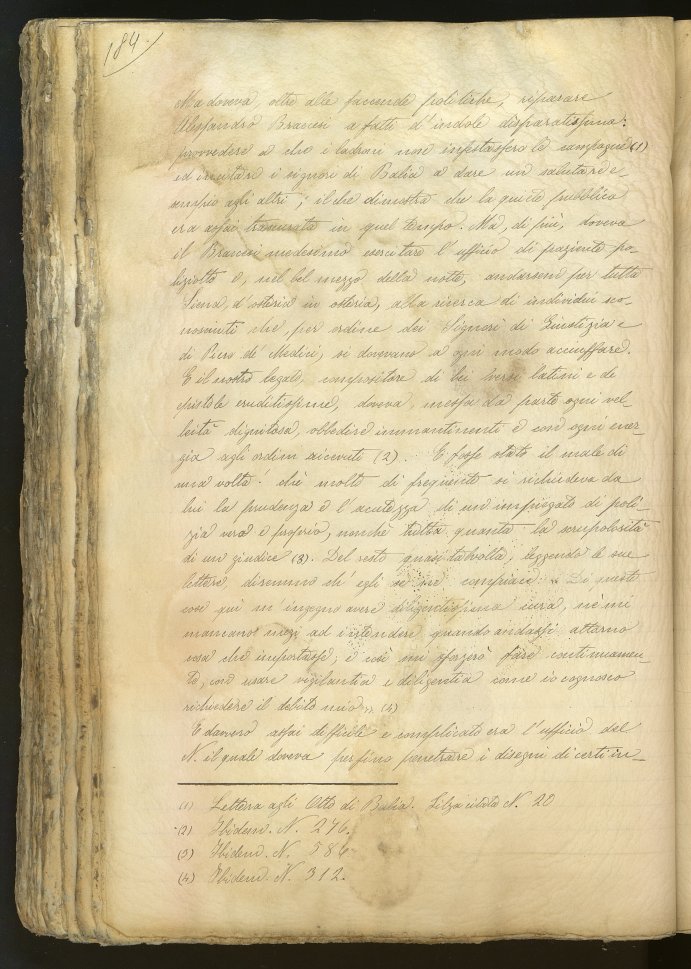 184.
Ma doveva, oltre alle faccende politiche, riparare
Alessandro Braccesi a fatti d'indole disparatissima:
provvedere a che i ladroni non infestassero le campagne (1)
ed incitare i signori di Balia a dare un salutare e
sempio agli altri; il che dimostra che la quiete pubblica
era assai trascurata in quel tempo. Ma, di più, doveva
il Braccesi medesimo esercitare l'ufficio di paziente po-
liziotto e, nel bel mezzo della notte, andarsene per tutta
Siena, d'osteria in osteria, alla ricerca di individui sco-
nosciuti che per ordine dei Signori di Giustizia e
di Piero de' Medici, si dovevano a ogni modo acciuffare.
E il nostro legato, compositore di bei versi latini e di
epistole eruditissime, doveva, messa da parte ogni vel-
leità dignitosa, obbedire immantinenti e con ogni ener-
gia agli ordini ricevuti (2). E fosse stato il male di
una volta! chè molto di frequente si richiedeva da
lui la prudenza e l'acutezza di un impiegato di poli-
zia vero e proprio, nonchè tutta quanta la scrupolosità
di un giudice (3). Del resto quasi talvolta, leggendo le sue
lettere, diremmo ch'egli se ne compiace: « Di queste
cose qui m'ingegno avere diligentissima cura, nè mi
mancano mezi ad intendere quando andassi attorno
cosa che importasse, e così mi sforzerò fare continuamen-
te, con usare vigilantia e diligentia come io cognosco
richiedere il debito mio». (4)
E davvero assai difficile e complicato era l'ufficio del
N. il quale doveva perfino penetrare i disegni di certi in-
(1) Lettera agli Otto di Balia. Filza citata N. 20
(2) Ibidem. N. 276.
(3) Ibidem. N. 586
(4) Ibidem. N. 312.